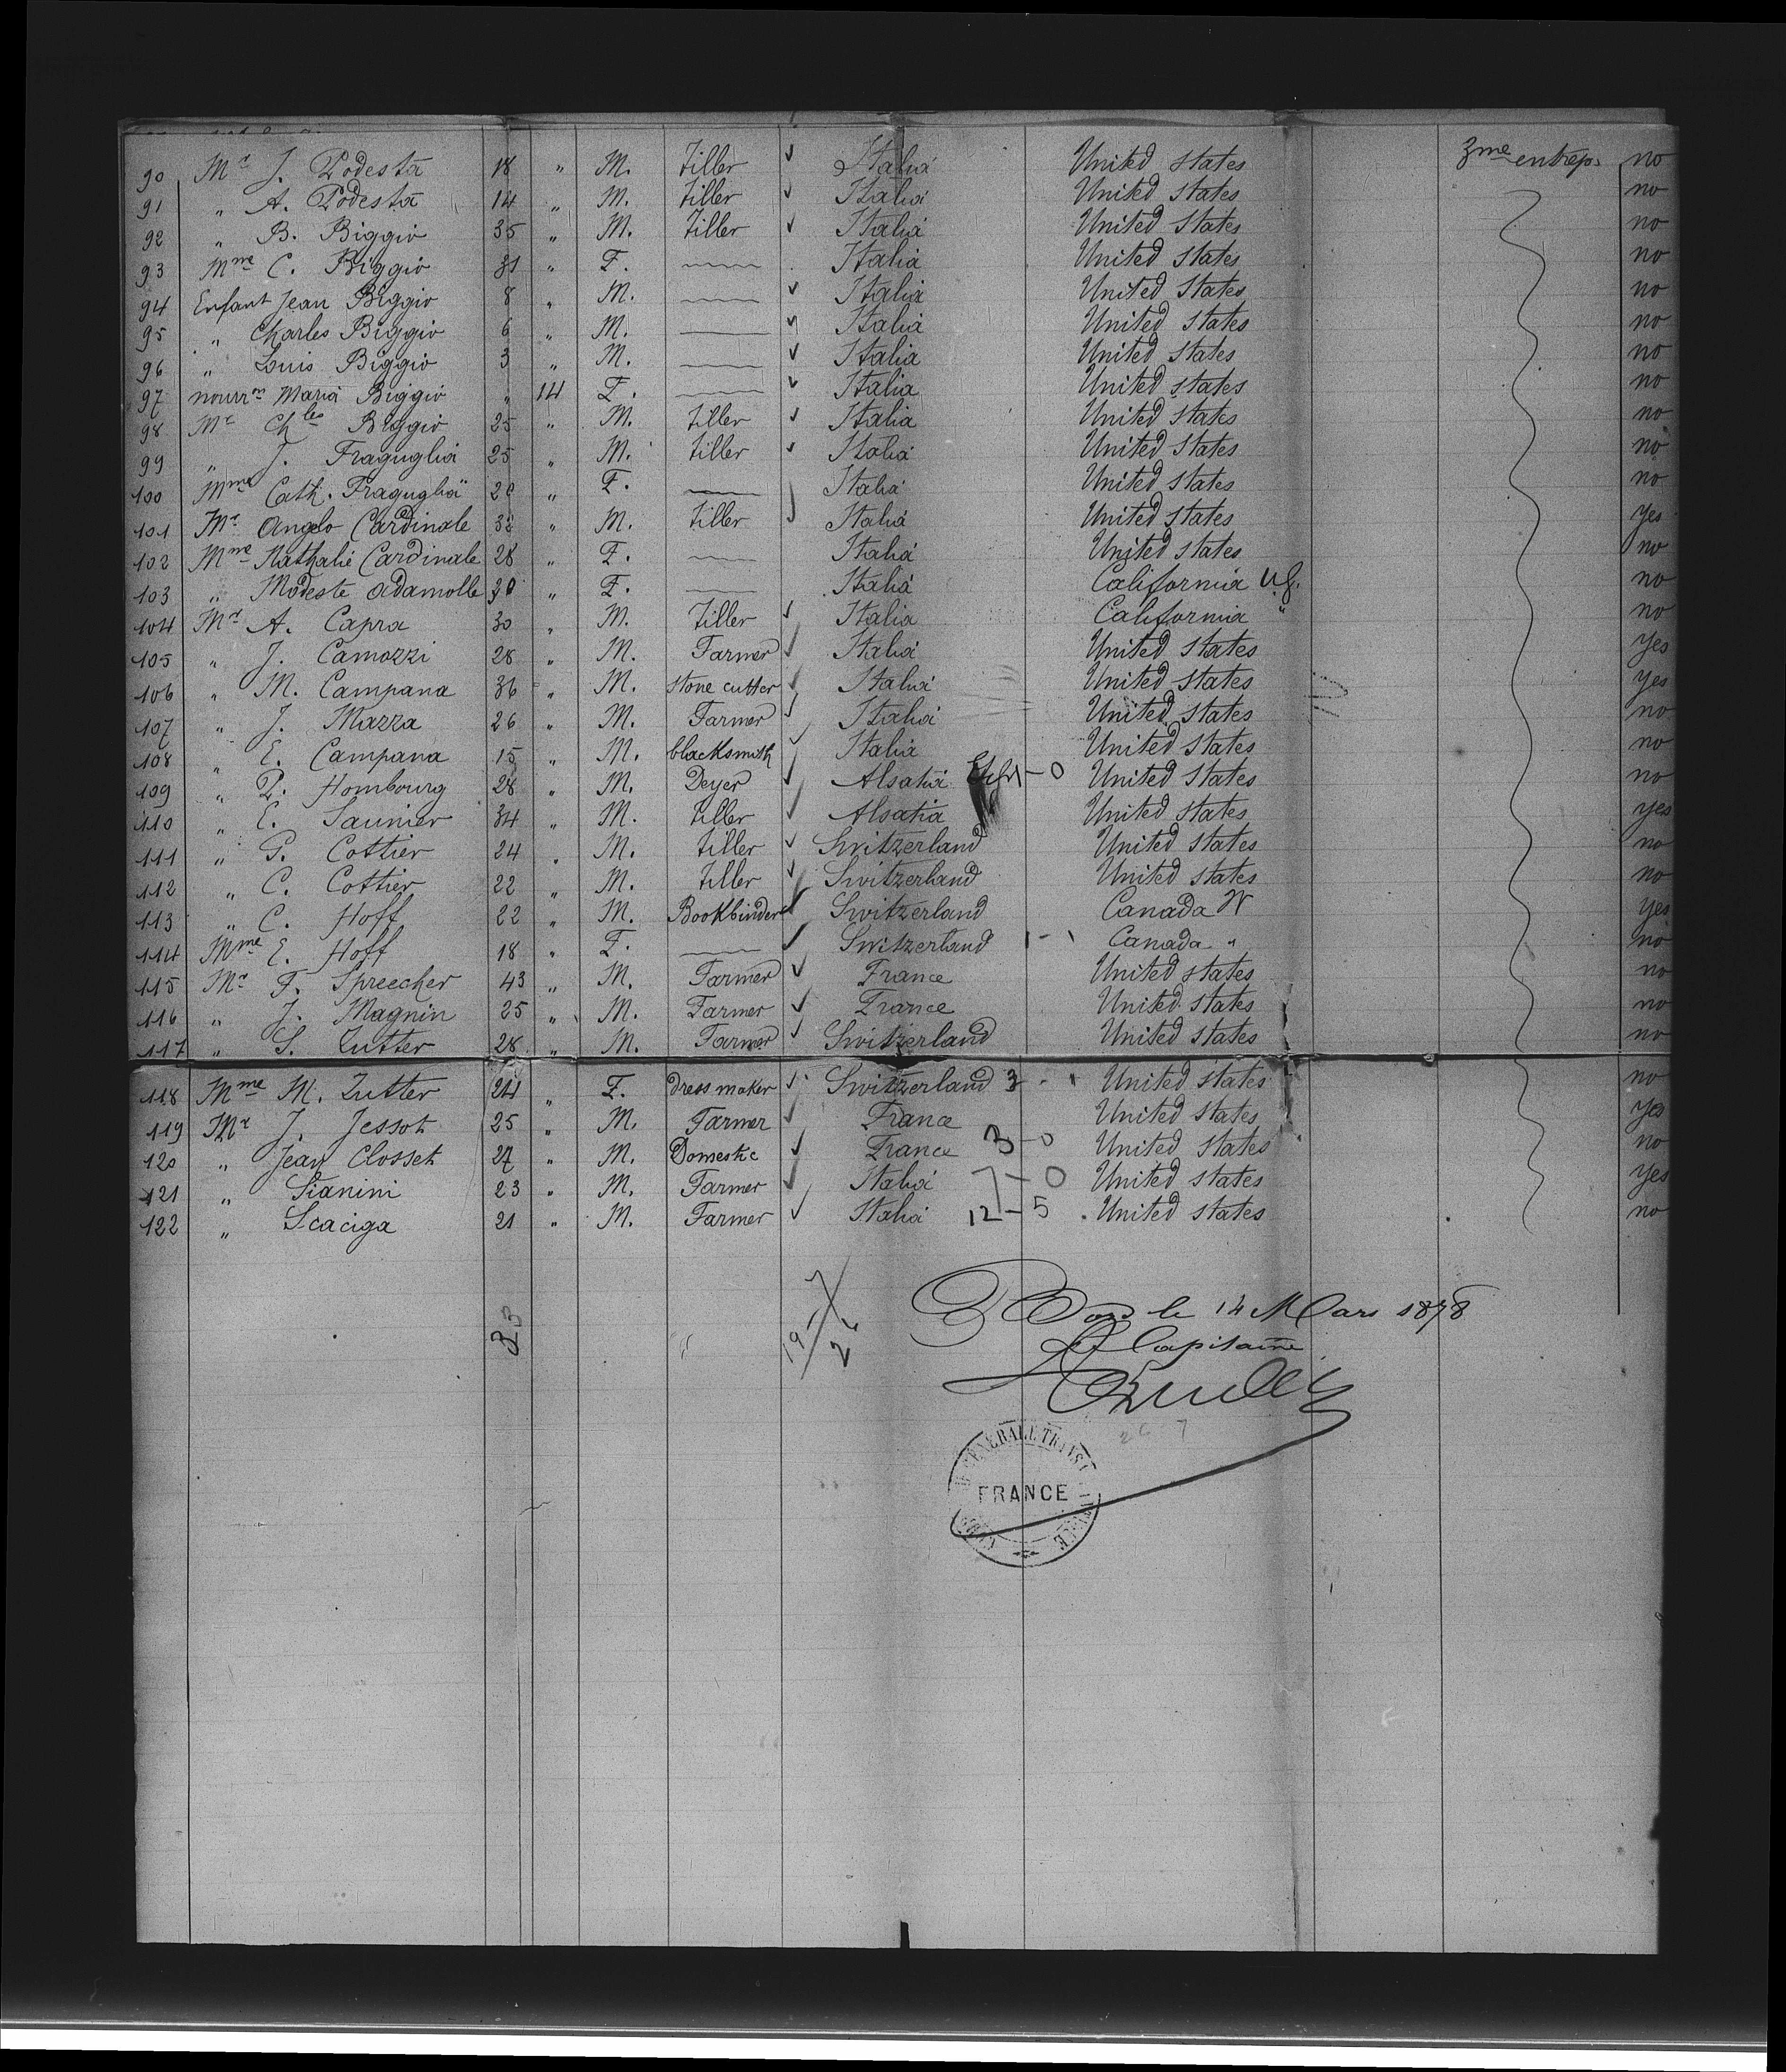 90 Mr J. Podesta 18 " M. tiller Italia United States 3me entrep. no
91 " A. Podesta 14 " M. tiller Italia United States no
92 " B. Biggio 35 " M. tiller Italia United States no
93 Mme C. Biggio 31 " F. Italia United States no
94 Enfant Jean Biggio 8 " M. Italia United States no
95 " Charles Biggio 6 " M. Italia United States no
96 " Louis Biggio 3 " M. Italia United States no
97 nourron Maria Biggio " 14 F. Italia United States no
98 Mr Chles Biggio 25 " M. tiller Italia United States no
99 " J. Fraguglia 25 " M. tiller Italia United States no
100 Mme Cath. Fraguglia " F. Italia United States no
101 Mr Angelo Cardinale 32 " M. tiller Italia United States yes
102 Mme Nathalie Cardinale 28 " F. Italia United States no
103 " Modeste Adamolle 30 " F. Italia California no
104 Mr A. Capra 30 " M. tiller Italia California " no
105 " J. Camozzi 28 " M. Farmer Italia United States yes
106 " M. Campana 36 " M. stone cutter Italia United States yes
107 " J. Mazza 26 " M. Farmer Italia United States no
108 " E. Campana 15 " M. blacksmith Italia United States no
109 " P. Hombourg 28 " M. Deyer Alsatia United States no
110 " E. Saunier 34 " M. tiller Alsatia United States yes
111 " G. Cottier 24 " M. tiller Switzerland United States no
112 " C. Cottier 22 " M. tiller Switzerland United States no
113 " C. Hoff 22 " M. Bookbinder Switzerland Canada yes
114 Mme E. Hoff 18 " F. Switzerland 1 - 1 Canada " no
115 Mr F. Spreecher 43 " M. Farmer France United States no
116 " J. Magnin 25 " M. Farmer France United States no
117 " S. Zutter 28 " M. Farmer Switzerland United States no
118 Mme M. Zutter 24 " F. dress maker Switzerland 3 - 1 United States no
119 Mr J. Jessot 25 " M. Farmer France United States yes
120 " Jean Closset 27 " M. Domestic France 3 - 0 United States no
121 " Sianini 23 " M. Farmer Italia 7 - 0 United States yes
122 " Scaciga 21 " M. Farmer Italia 12 - 5 United States no
Bord le 14 Mars 1878
Le Capitaine
FRANCE